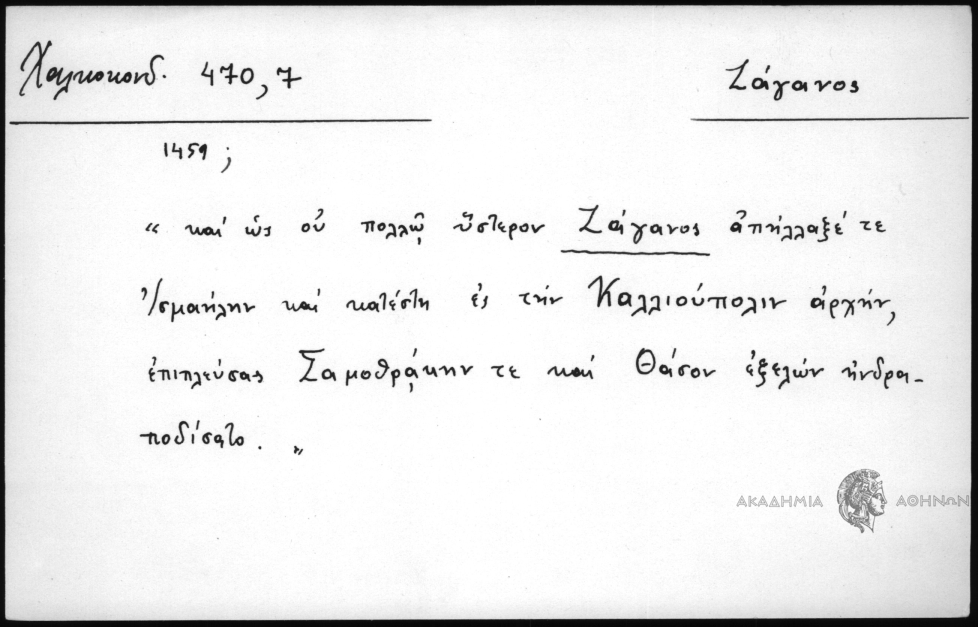 Χαλκοκονδ. 470,7
Ζάγανος
1459 ;
“ καί ὡς οὐ πολλῷ ὕστερον Ζάγανος ἀπήλλαξέ τε
Ἰσμαήλην καί κατέστη ἐς τήν Καλλιούπολιν ἀρχήν,
ἐπιπλεύσας Σαμοθρᾴκην τε καί Θάσον ἐξελών ἠνδρα-
ποδίσατο. ”
ΑΚΑΔΗΜΙΑ ΑΘΗΝΩΝ